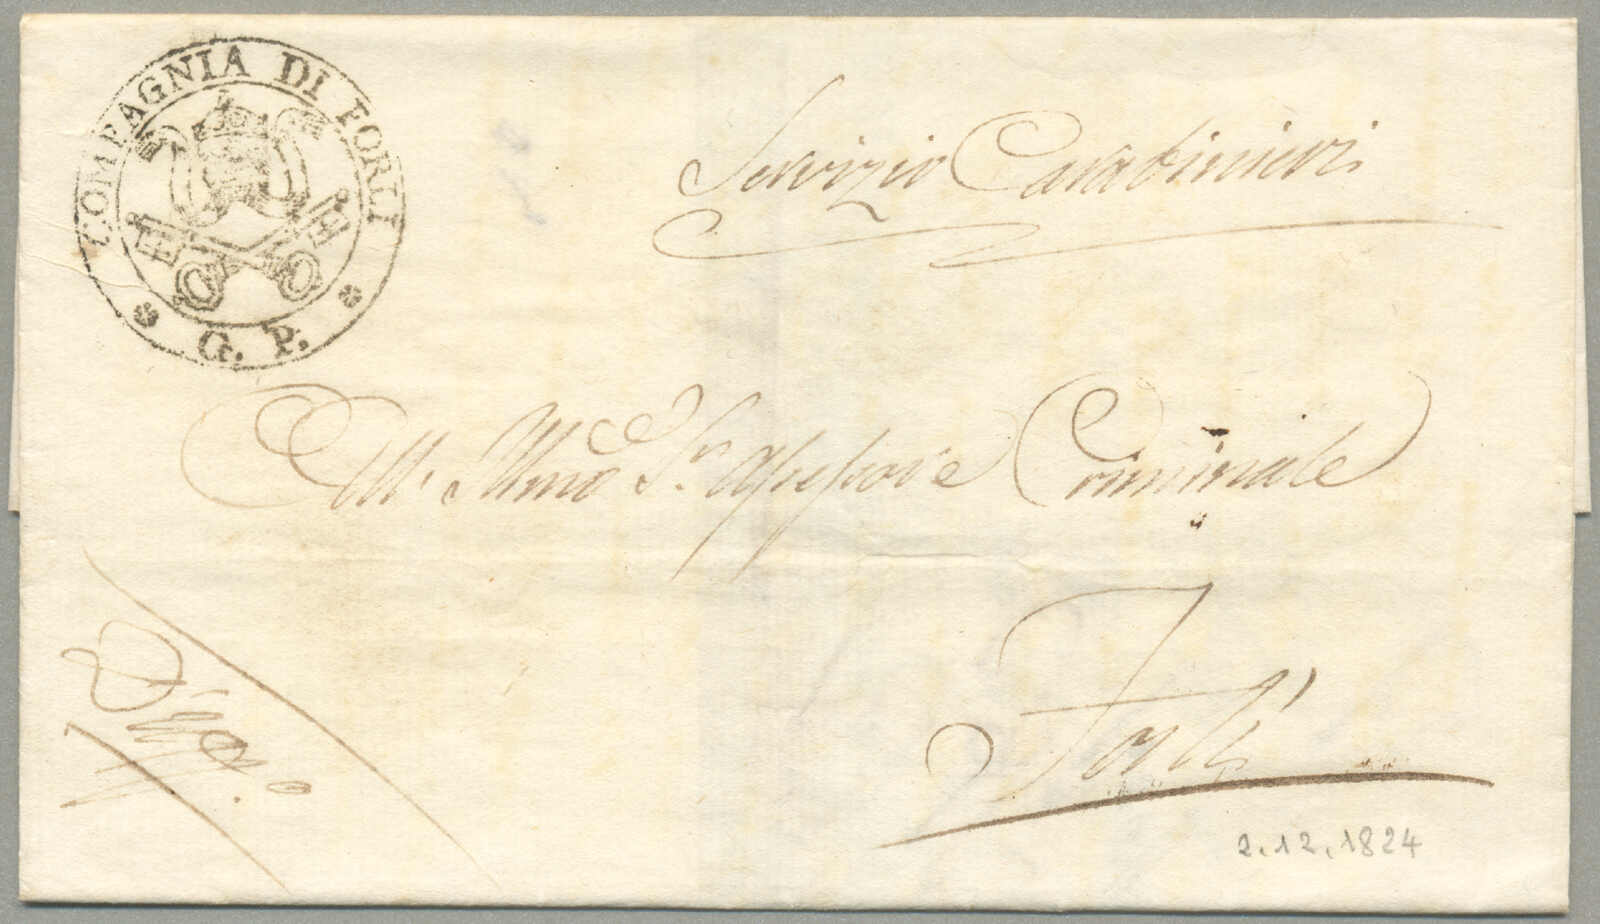 COMPAGNIA DI FORLI
G. P.
Servizio Carabinieri
All' Illmo Sr. Assessore Criminale
Forlì
D'Uffo.
2.12.1824